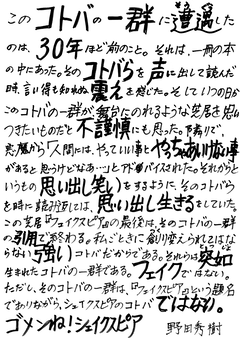 このコトバの一群に遭遇した
のは、30年ほど前のこと。それは、一冊の本
の中にあった。そのコトバらを声に出して読んだ
時、言い得も知れぬ震えを感じた。そしていつの日か
このコトバの一群が、舞台にのれるような芝居を
つきたいものだと不謹慎にも思った。
悪魔から「人間には、やっていい事とやっちゃあいけない事
があると思うけどなあ…」とアドバイスされた。それからと
いうもの思い出し笑いをするように、そのコトバら
を時に読み返しては、思い出し生きをしていた。
この芝居『フェイクスピア』の最後は、そのコトバの一群
の引用で終わる。私ごときに創り変えられてはな
らない強いコトバだからである。それらは突如
生まれたコトバの一群である。フェイクではない。
ただし、そのコトバの一群は、『フェイクスピア』という題名
でありながら、シェイクスピアのコトバではない。
ゴメンね!シェイクスピア
野田秀樹